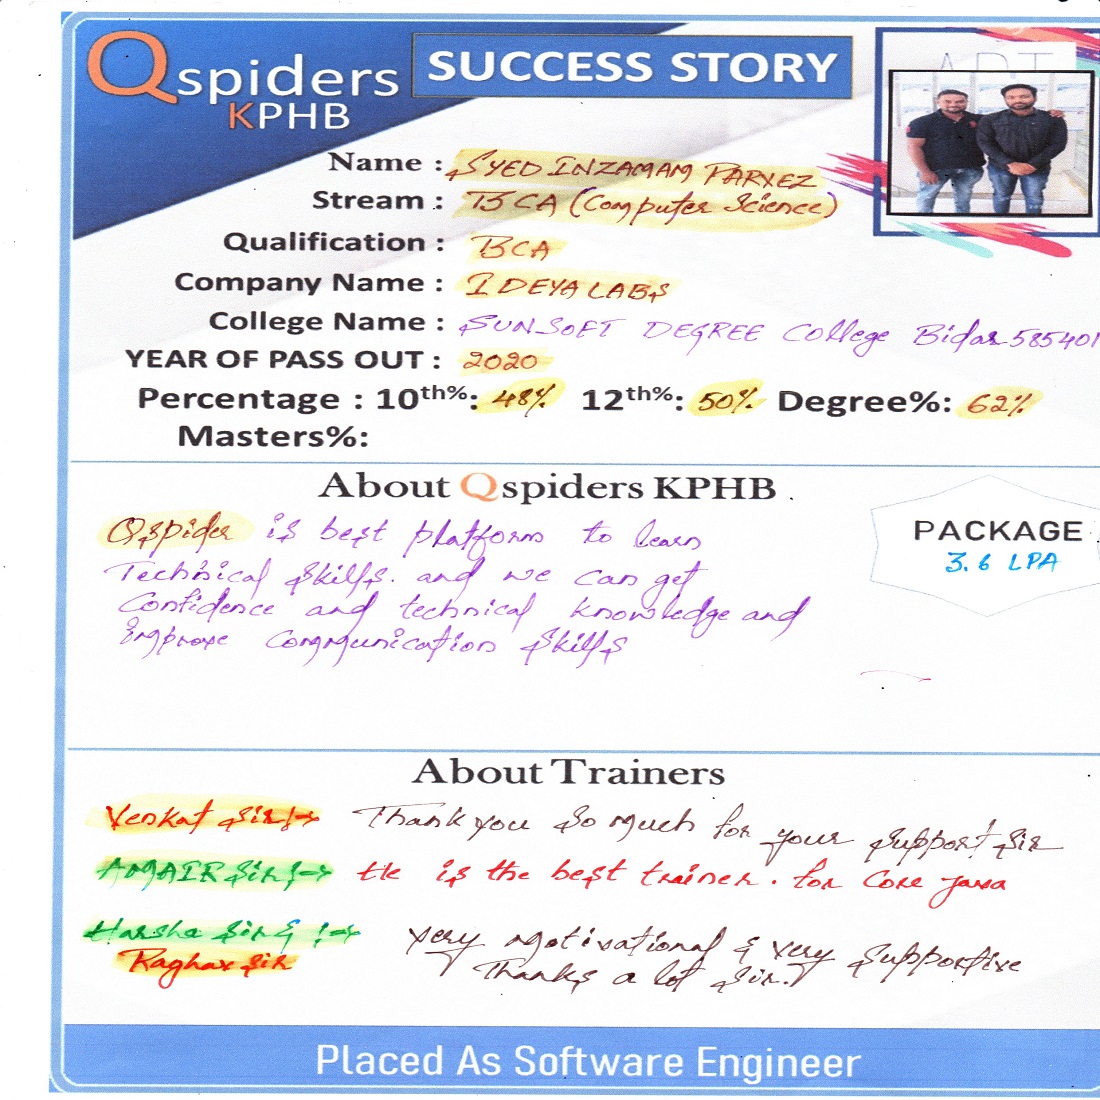 Qspiders
KPHB
SUCCESS STORY
Name : SYED INZAMAM PARVEZ
Stream : BCA (Computer Science)
Qualification : BCA
Company Name : IDEYALABS
College Name : SUNSOFT DEGREE College Bidar 585401
YEAR OF PASS OUT : 2020
Percentage : 10th%: 48% 12th%: 50% Degree%: 62%
Masters%:
About Qspiders KPHB .
Qspider is best platform to learn
Technical skills. and we can get
Confidence and technical knowledge and
improve communication skills
PACKAGE
3.6 LPA
About Trainers
Venkat sir:-> Thank you so much for your support sir
AMAIR Sir:-> He is the best trainer. for Core java
Harsha sir & :-> very motivational & very supportive
Raghav sir Thanks a lot sir.
Placed As Software Engineer